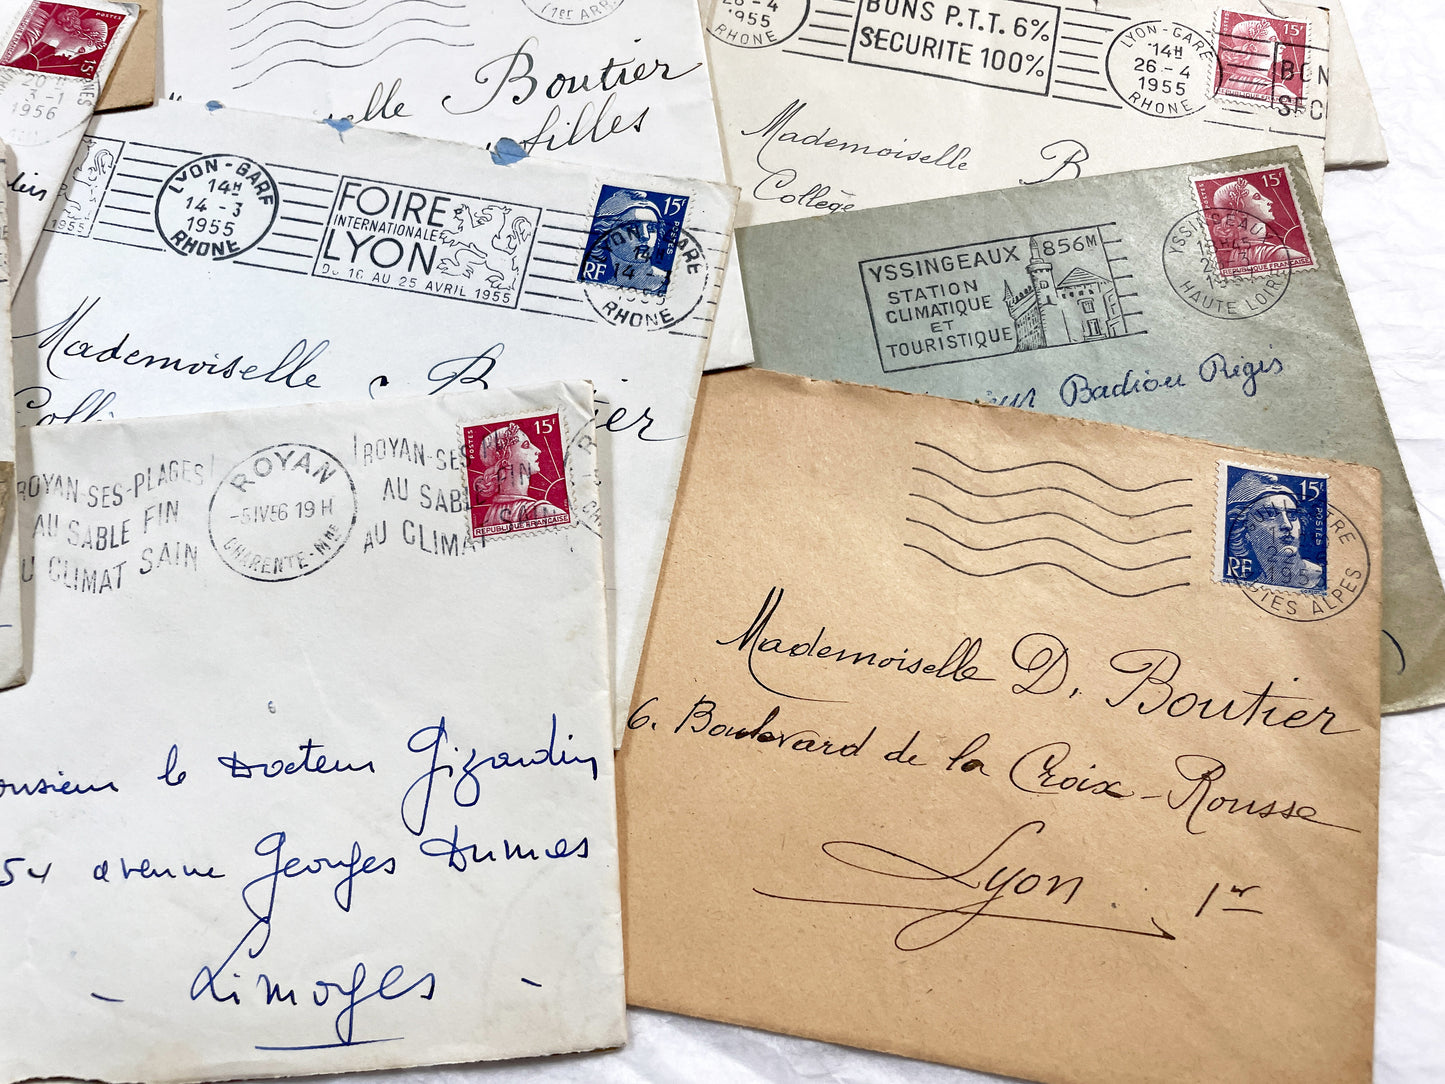 15F
20
3-1
1956
(1er ARR
Boutier
filles
26-4
1955
RHONE
BONS P.T.T. 6%
SECURITE 100%
LYON-GARE
14H
26-4
1955
RHONE
15F
REPUBLIQUE FRANÇAISE
BON
SEC
Mademoiselle B
Collège
1955
LYON-GARE
14H
14-3
1955
RHONE
FOIRE
INTERNATIONALE
LYON
DU 16 AU 25 AVRIL 1955
15F
POSTES
RF
LYON-GARE
14H
14-3
1955
RHONE
Mademoiselle
Boutier
YSSINGEAUX 856M
STATION
CLIMATIQUE
ET
TOURISTIQUE
15F
REPUBLIQUE FRANÇAISE
YSSINGEAUX
HAUTE LOIRE
Badiou Régis
ROYAN-SES-PLAGES
AU SABLE FIN
AU CLIMAT SAIN
ROYAN
-5 IV 56 19 H
CHARENTE-Mme
ROYAN-SES-
AU SABLE FIN
AU CLIMAT
POSTES
15F
REPUBLIQUE FRANÇAISE
Monsieur le Docteur Gizardin
54 avenue Georges Dumas
- Limoges -
15F
POSTES
RF
ALPES
Mademoiselle D. Boutier
6. Boulevard de la Croix-Rousse
Lyon. 1er